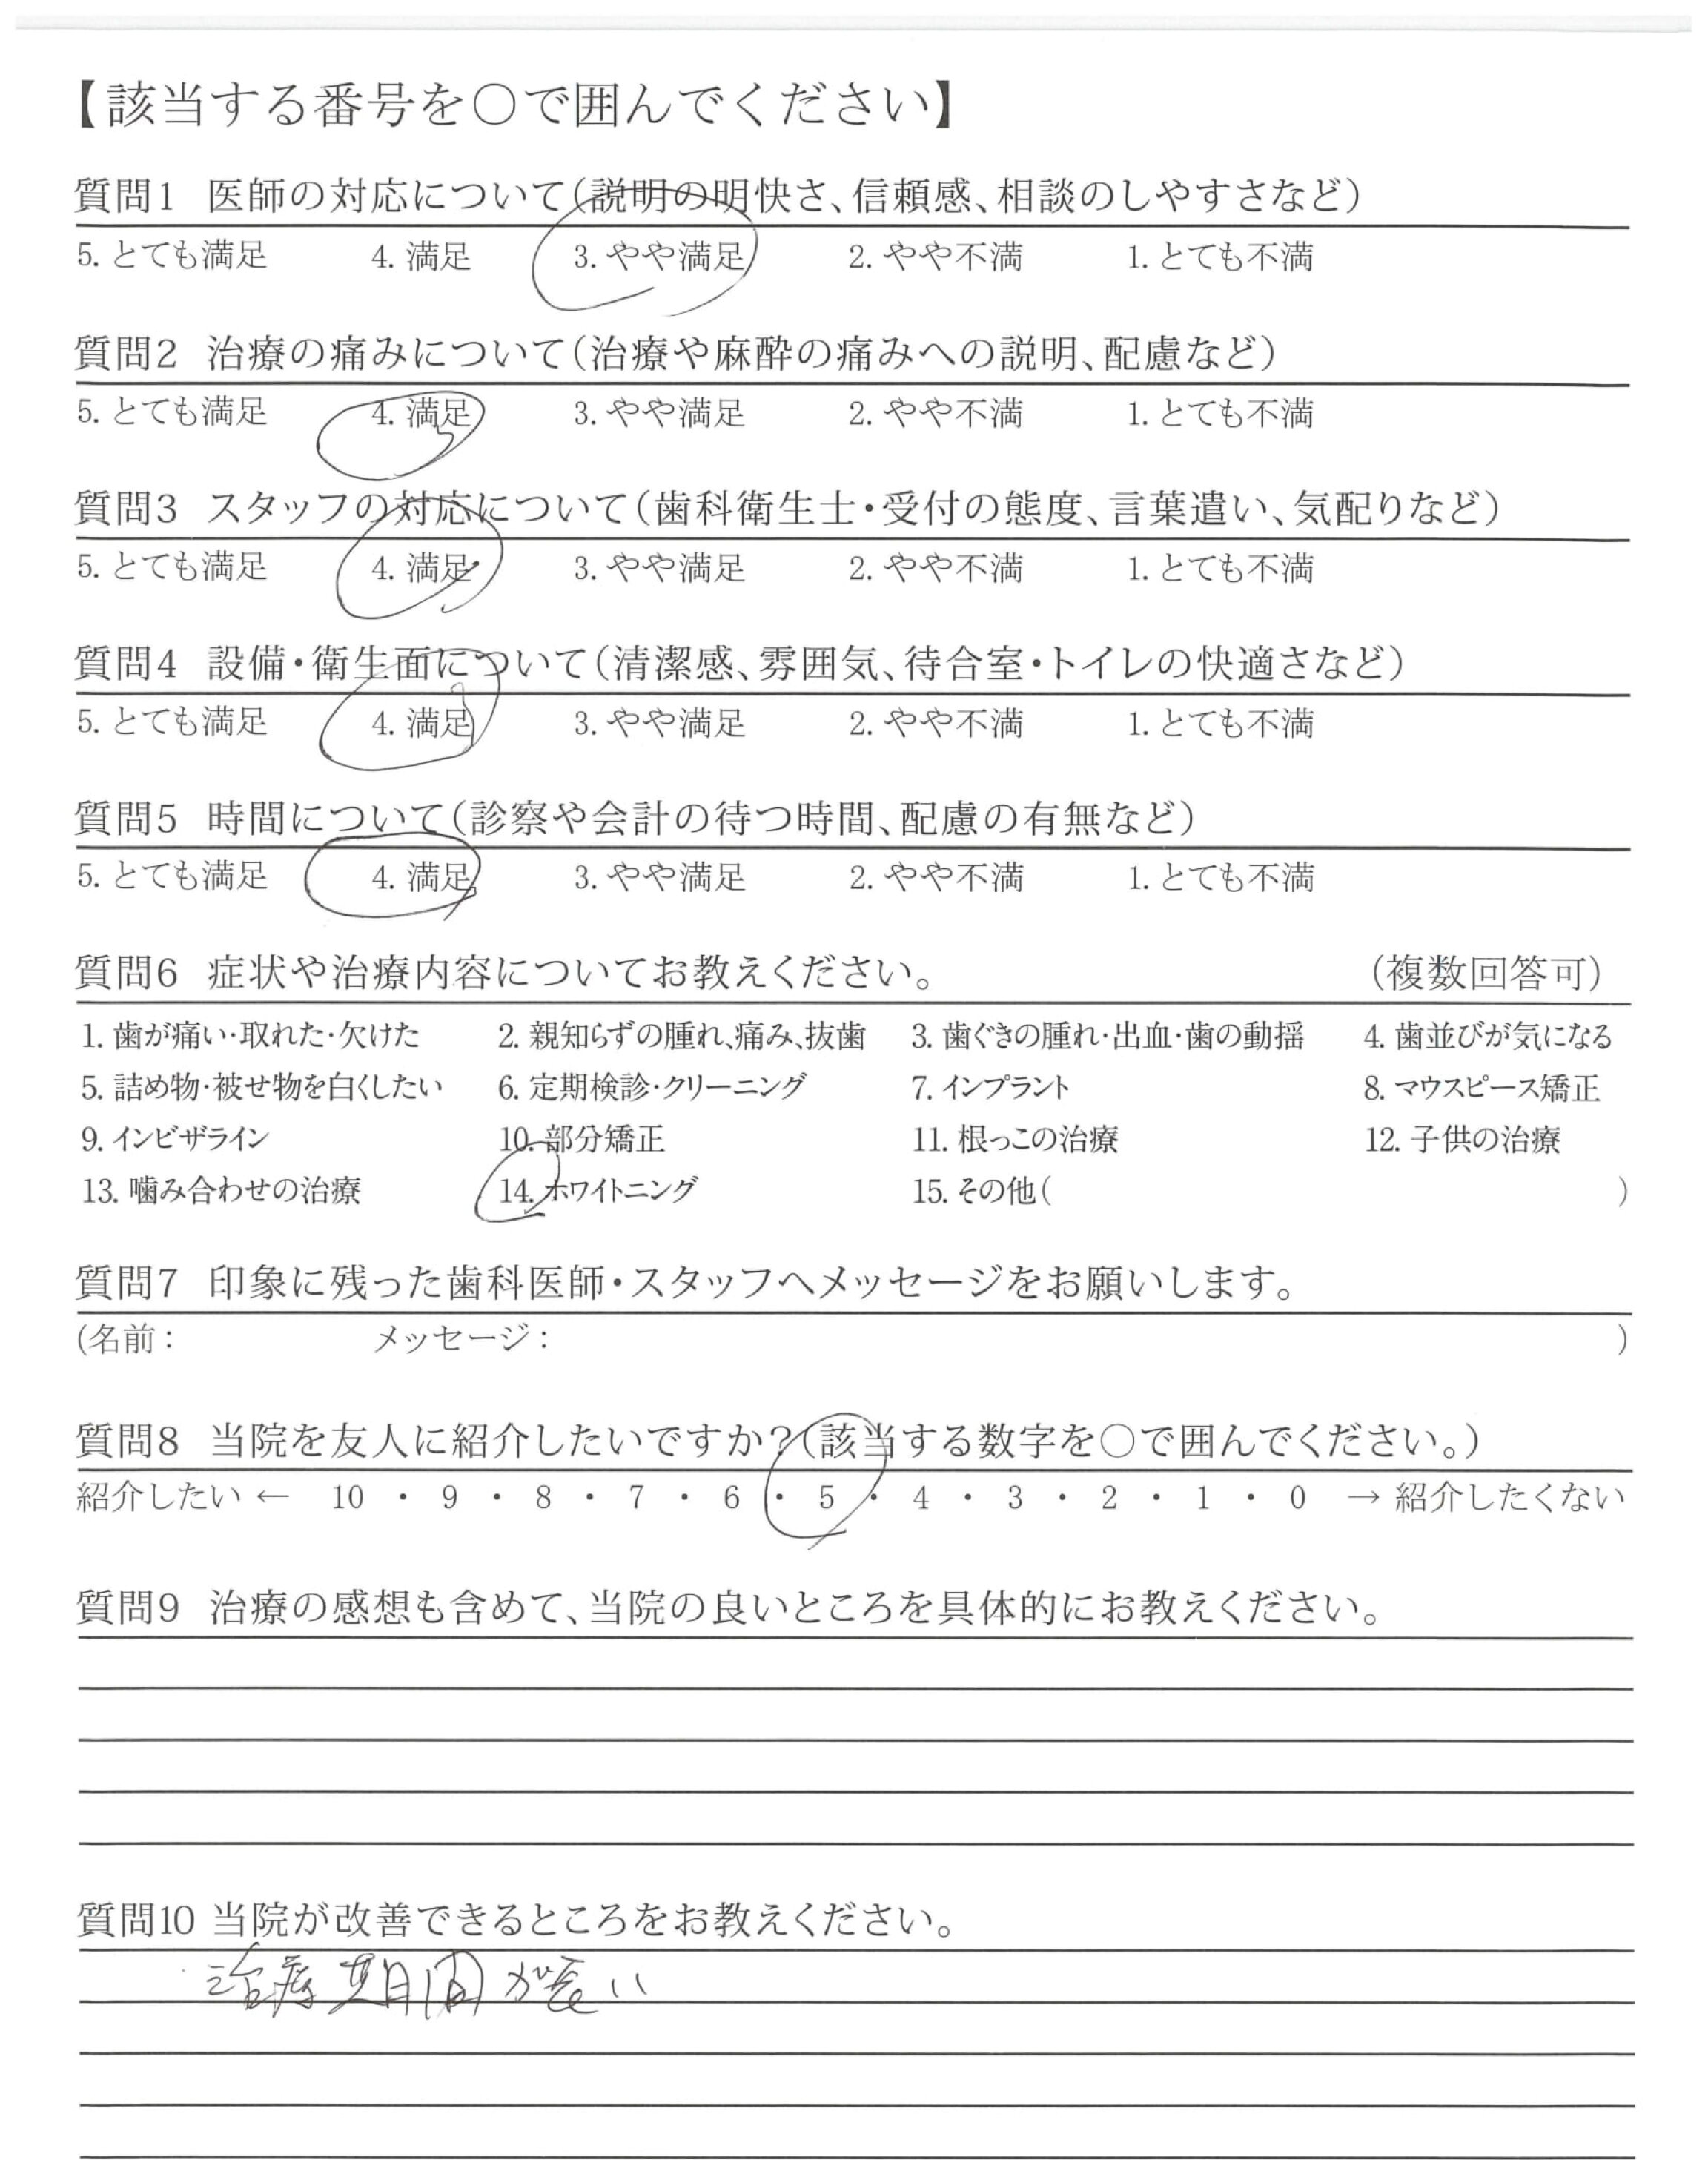 【該当する番号を○で囲んでください】
質問1 医師の対応について(説明の明快さ、信頼感、相談のしやすさなど)
5. とても満足 4. 満足 3. やや満足 2. やや不満 1. とても不満
質問2 治療の痛みについて(治療や麻酔の痛みへの説明、配慮など)
5. とても満足 4. 満足 3. やや満足 2. やや不満 1. とても不満
質問3 スタッフの対応について(歯科衛生士・受付の態度、言葉遣い、気配りなど)
5. とても満足 4. 満足 3. やや満足 2. やや不満 1. とても不満
質問4 設備・衛生面について(清潔感、雰囲気、待合室・トイレの快適さなど)
5. とても満足 4. 満足 3. やや満足 2. やや不満 1. とても不満
質問5 時間について(診察や会計の待つ時間、配慮の有無など)
5. とても満足 4. 満足 3. やや満足 2. やや不満 1. とても不満
質問6 症状や治療内容についてお教えください。 (複数回答可)
1. 歯が痛い・取れた・欠けた 2. 親知らずの腫れ、痛み、抜歯 3. 歯ぐきの腫れ・出血・歯の動揺 4. 歯並びが気になる
5. 詰め物・被せ物を白くしたい 6. 定期検診・クリーニング 7. インプラント 8. マウスピース矯正
9. インビザライン 10. 部分矯正 11. 根っこの治療 12. 子供の治療
13. 噛み合わせの治療 14. ホワイトニング 15. その他( )
質問7 印象に残った歯科医師・スタッフへメッセージをお願いします。
(名前： メッセージ： )
質問8 当院を友人に紹介したいですか?(該当する数字を○で囲んでください。)
紹介したい ← 10 ・ 9 ・ 8 ・ 7 ・ 6 ・ 5 ・ 4 ・ 3 ・ 2 ・ 1 ・ 0 → 紹介したくない
質問9 治療の感想も含めて、当院の良いところを具体的にお教えください。
質問10 当院が改善できるところをお教えください。
治療期間が長い